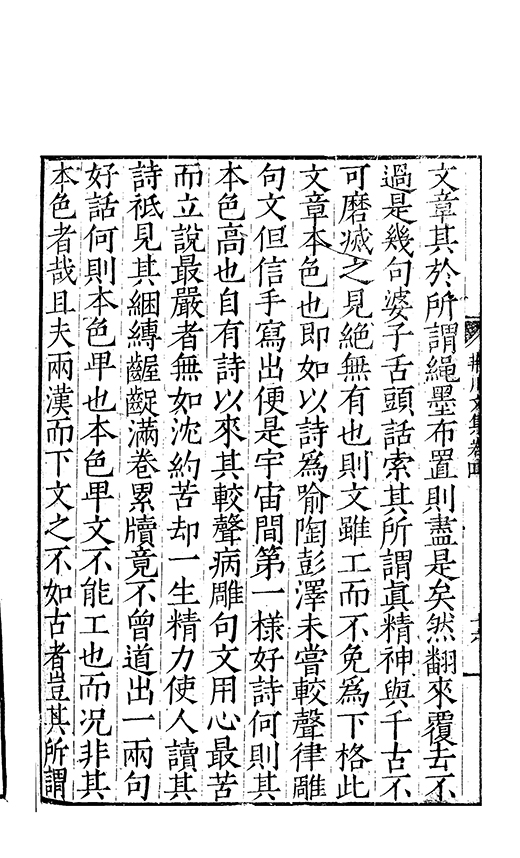 文章其於所謂繩墨布置則盡是矣然翻來覆去不
過是幾句婆子舌頭話索其所謂眞精神與千古不
可磨滅之見絶無有也則文雖工而不免爲下格此
文章本色也即如以詩爲喻陶彭澤未嘗較聲律雕
句文但信手寫出便是宇宙間第一様好詩何則其
本色高也自有詩以來其較聲病雕句文用心最苦
而立說最嚴者無如沈約苦却一生精力使人讀其
詩祗見其綑縛齷齪滿卷累牘竟不曾道出一兩句
好話何則本色卑也本色卑文不能工也而况非其
本色者哉且夫兩漢而下文之不如古者豈其所謂
荆川文集卷四